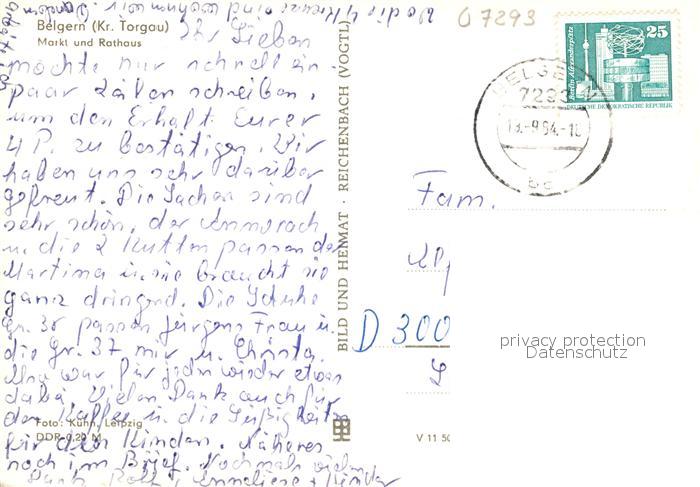 Wo die 4 Kreuze sind wohnen wir.
07293
Belgern (Kr. Torgau)
Markt und Rathaus
Ihr Lieben
möchte nur schnell ein
paar Zeilen schreiben,
um den Erhalt Eurer
4 P. zu bestätigen. Wir
haben uns sehr darüber
gefreut. Die Sachen sind
sehr schön, der Annorack
u. die 2 Kuttn passen der
Martina u. sie braucht sie
ganz dringend. Die Schuhe
Gr. 36 passen Jürgens Frau u.
die Gr. 37 mir u. Christa.
Also war für jeden wieder etwas
dabei. Vielen Dank auch für
den Kaffee u. die Süßigkeiten
Foto: Kühn, Leipzig
für den Kindern. Näheres
DDR 0,20 M
noch im Brief. Nochmals vielen
Dank Rolf, Anneliese + Kinder
BILD UND HEIMAT · REICHENBACH (VOGTL)
V 11 50
25
Berlin, Alexanderplatz
DEUTSCHE DEMOKRATISCHE REPUBLIK
BELGERN
7293
13.-9.84.-18
Fam.
D 300
privacy protection
Datenschutz